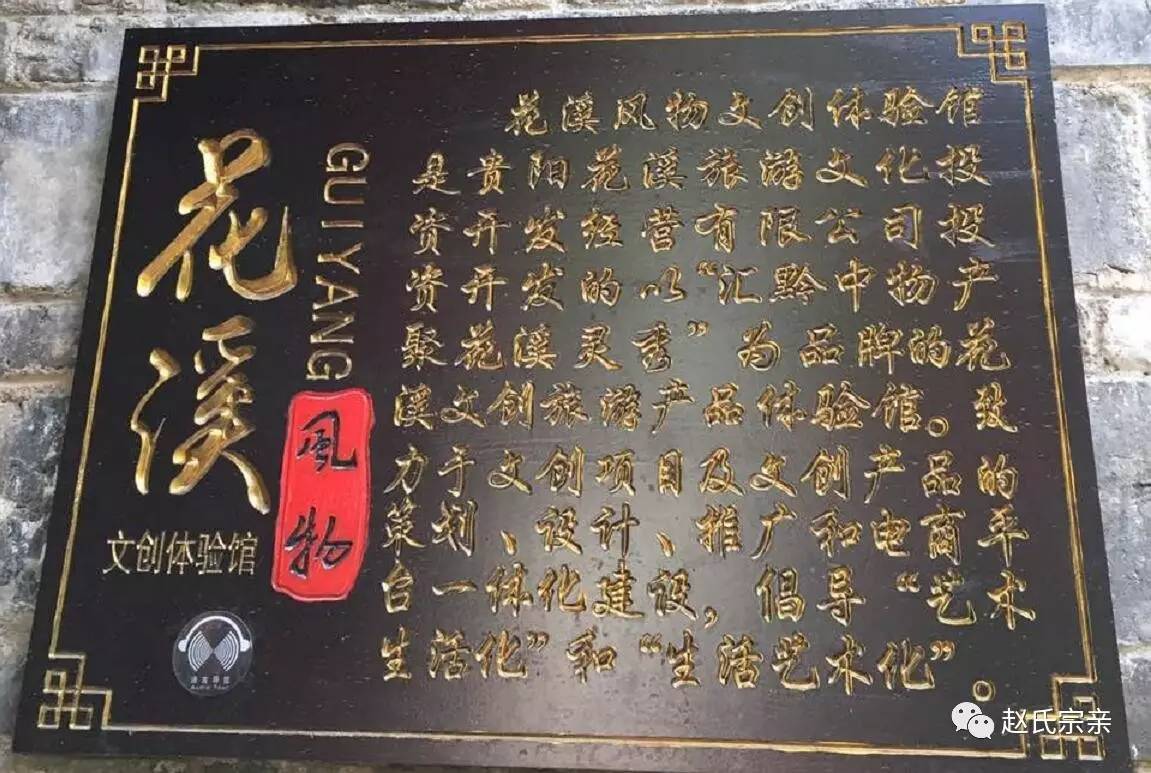 花溪
GUIYANG
風物
文创体验馆
语音导览
Audio Tour
花溪风物文创体验馆
是贵阳花溪旅游文化投
资开发经营有限公司投
资开发的以“汇黔中物产
聚花溪灵秀”为品牌的花
溪文创旅游产品体验馆。致
力于文创项目及文创产品的
策划、设计、推广和电商平
台一体化建设，倡导“艺术
生活化”和“生活艺术化”。
赵氏宗亲